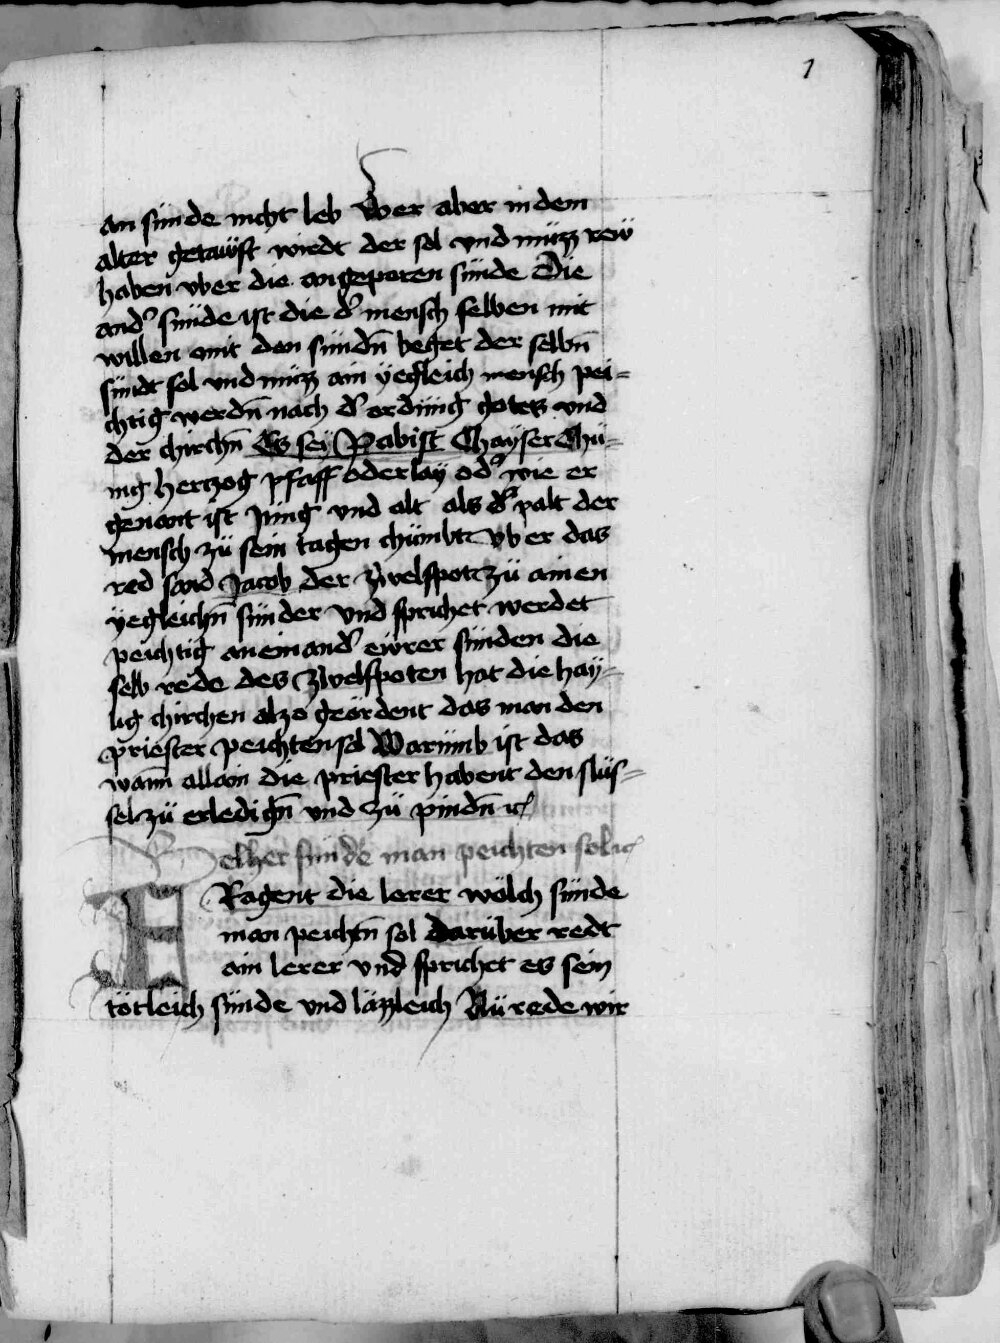 1
an sünde nicht leb Wer aber in dem
alter getaufft wirdt der sol vnd müzz rew
haben vber die angeporen sünde Die
and' sünde ist die d' mensch selben mit
willen mit den sündn̄ beget der selbn̄
sündt sol vnd müzz ain yegleich mensch pei=
chtig werdn̄ nach d' ordnüng gotes vnd
der chirchn̄ Es sey Pabist Chayser Chü=
nig hertzog pfaff oder lay od' wie er
genant ist Jung vnd alt als d' palt der
mensch zü sein tagen chümbt vber das
red sand Jacob der zwelfpot zü ainen
yegleichn̄ sünder vnd sprichet werdet
peichtig aneinand' ewrer sünden die
selb rede des zwelfpoten hat die hay=
lig chirchen alzo geördent das man den
priester peichten sol Warümb ist das
wann allain die priester habent den slüs=
sel zü erledign̄ vnd zü pindn̄ ꝛc
Welher sünde man peichten sol ꝛc
FRagent die lerer wölch sünde
man peichtn̄ sol darüber redt
ain lerer vnd sprichet es sein
tötleich sünde vnd läzzleich Nü rede wir